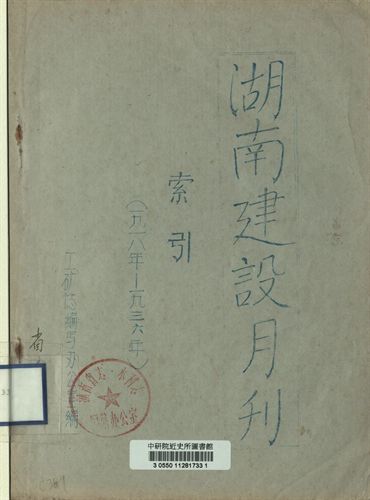 湖南建設月刊
索引
(一九二八年—一九三六年)
工矿志編写办公室編
省
中研院近史所圖書館
3 0550 11281733 1